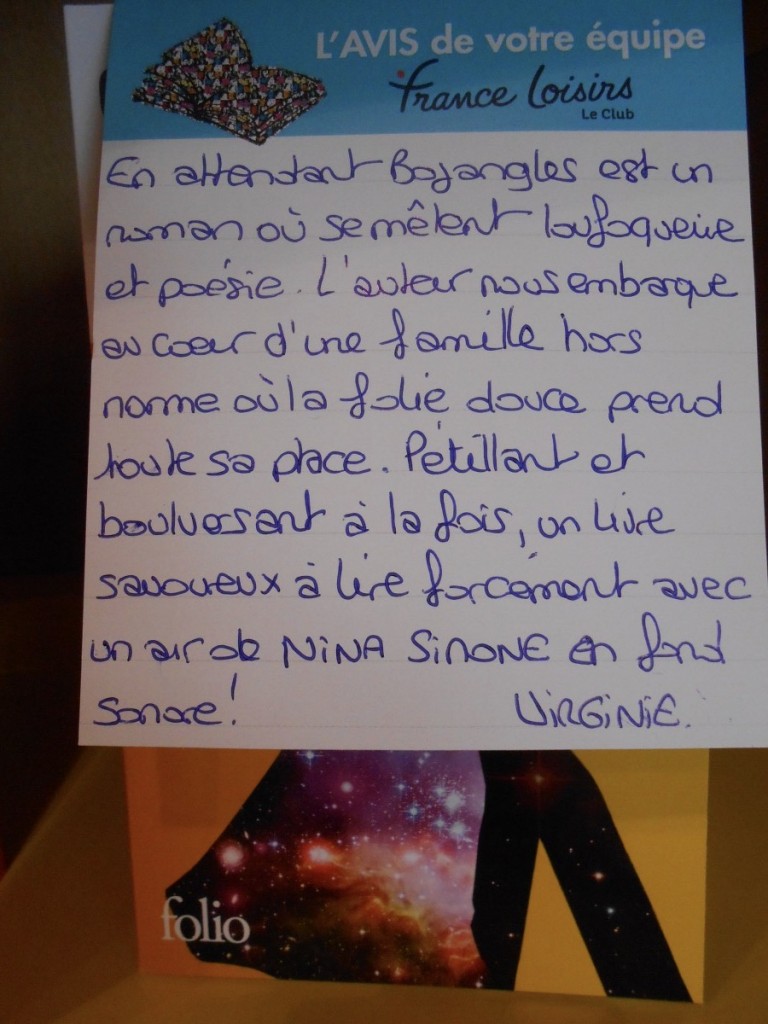 L'AVIS de votre équipe
france loisirs
Le Club
En attendant Bojangles est un
roman où se mêlent loufoquerie
et poésie. L'auteur nous embarque
au coeur d'une famille hors
norme où la folie douce prend
toute sa place. Pétillant et
bouleversant à la fois, un livre
savoureux à lire forcément avec
un air de NINA SIMONE en fond
sonore!
VIRGINIE.
folio